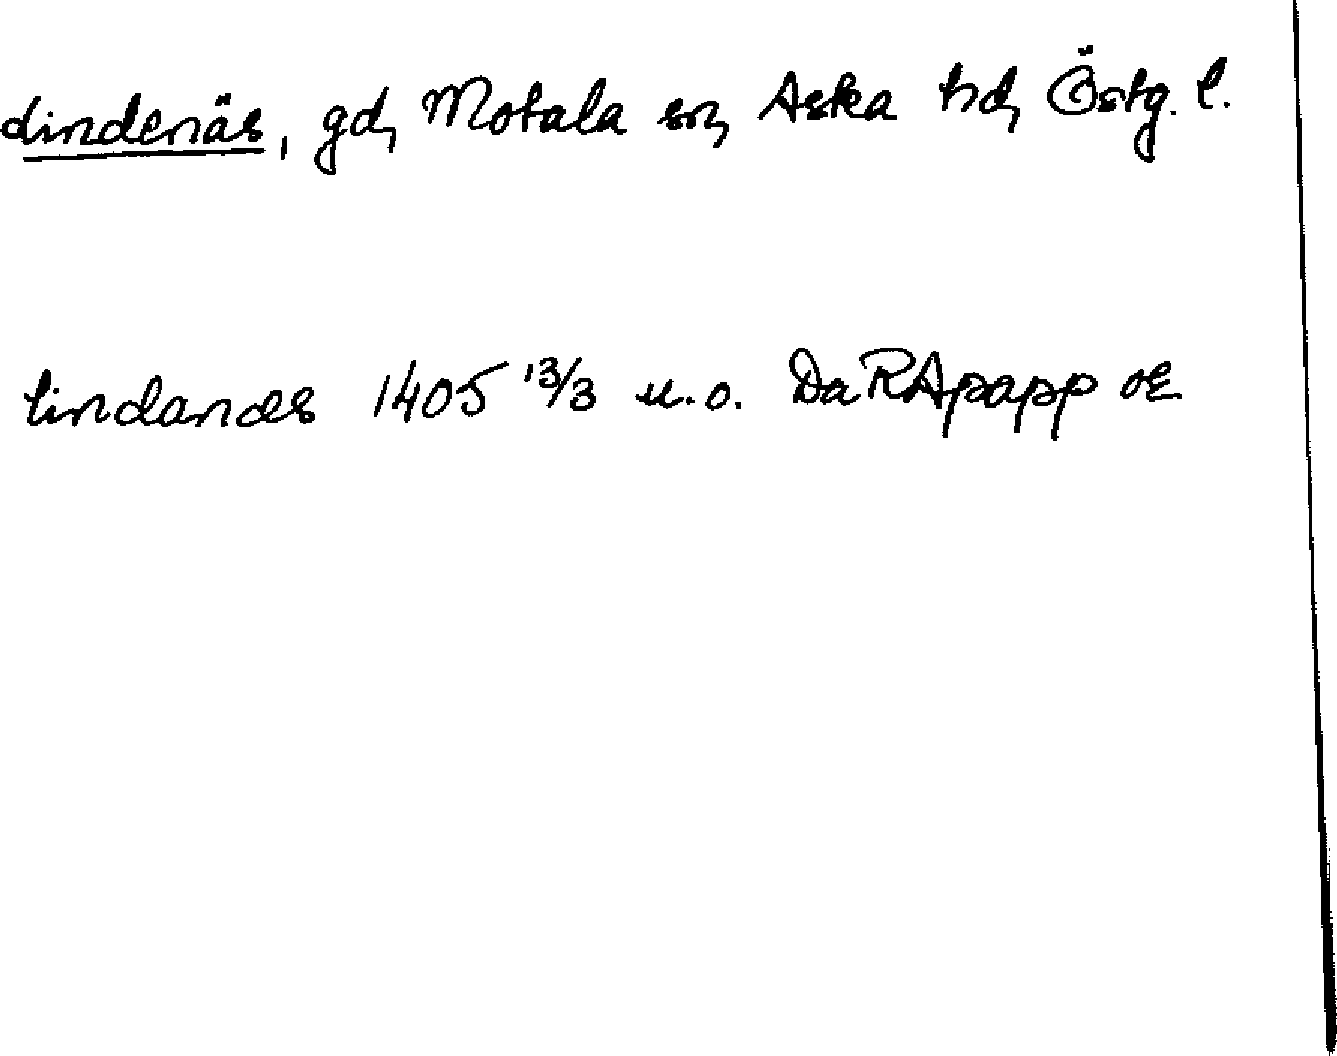 Lindenäs, gd, Motala sn, Aska hd, Östg. l.
Lindanæs 1405 13/3 u.o. Da RApapp or